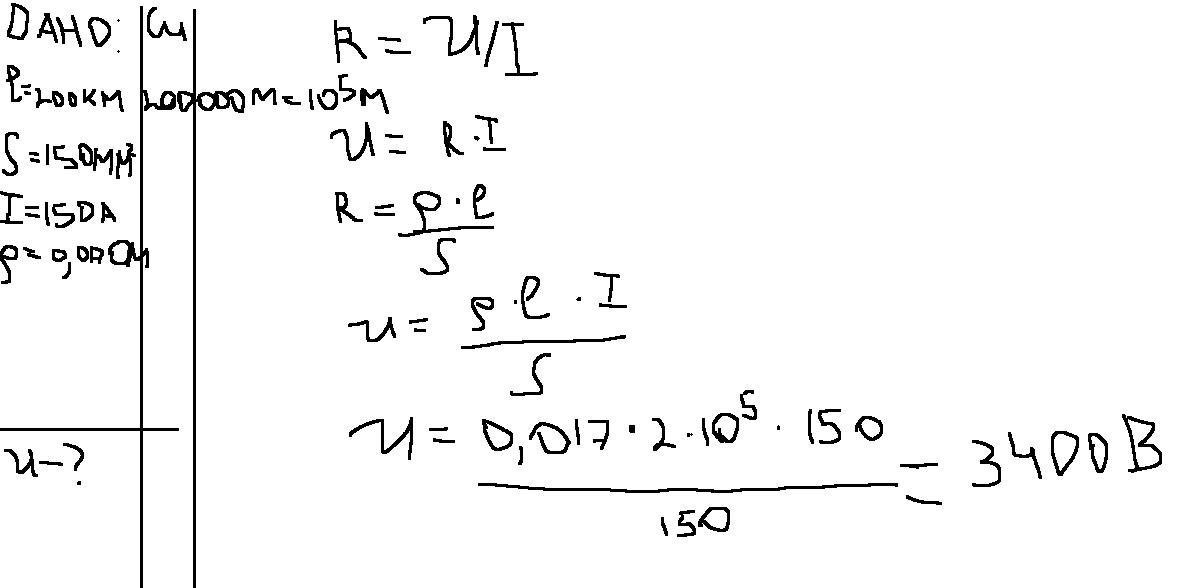 ДАНО: Си
l=200КМ 200000М=10⁵М
S=150ММ²
I=150А
U-?
R=U/I
U=R·I
R=ρ·l/S
U=ρ·l·I/S
U=0,017·2·10⁵·150/150=3400В